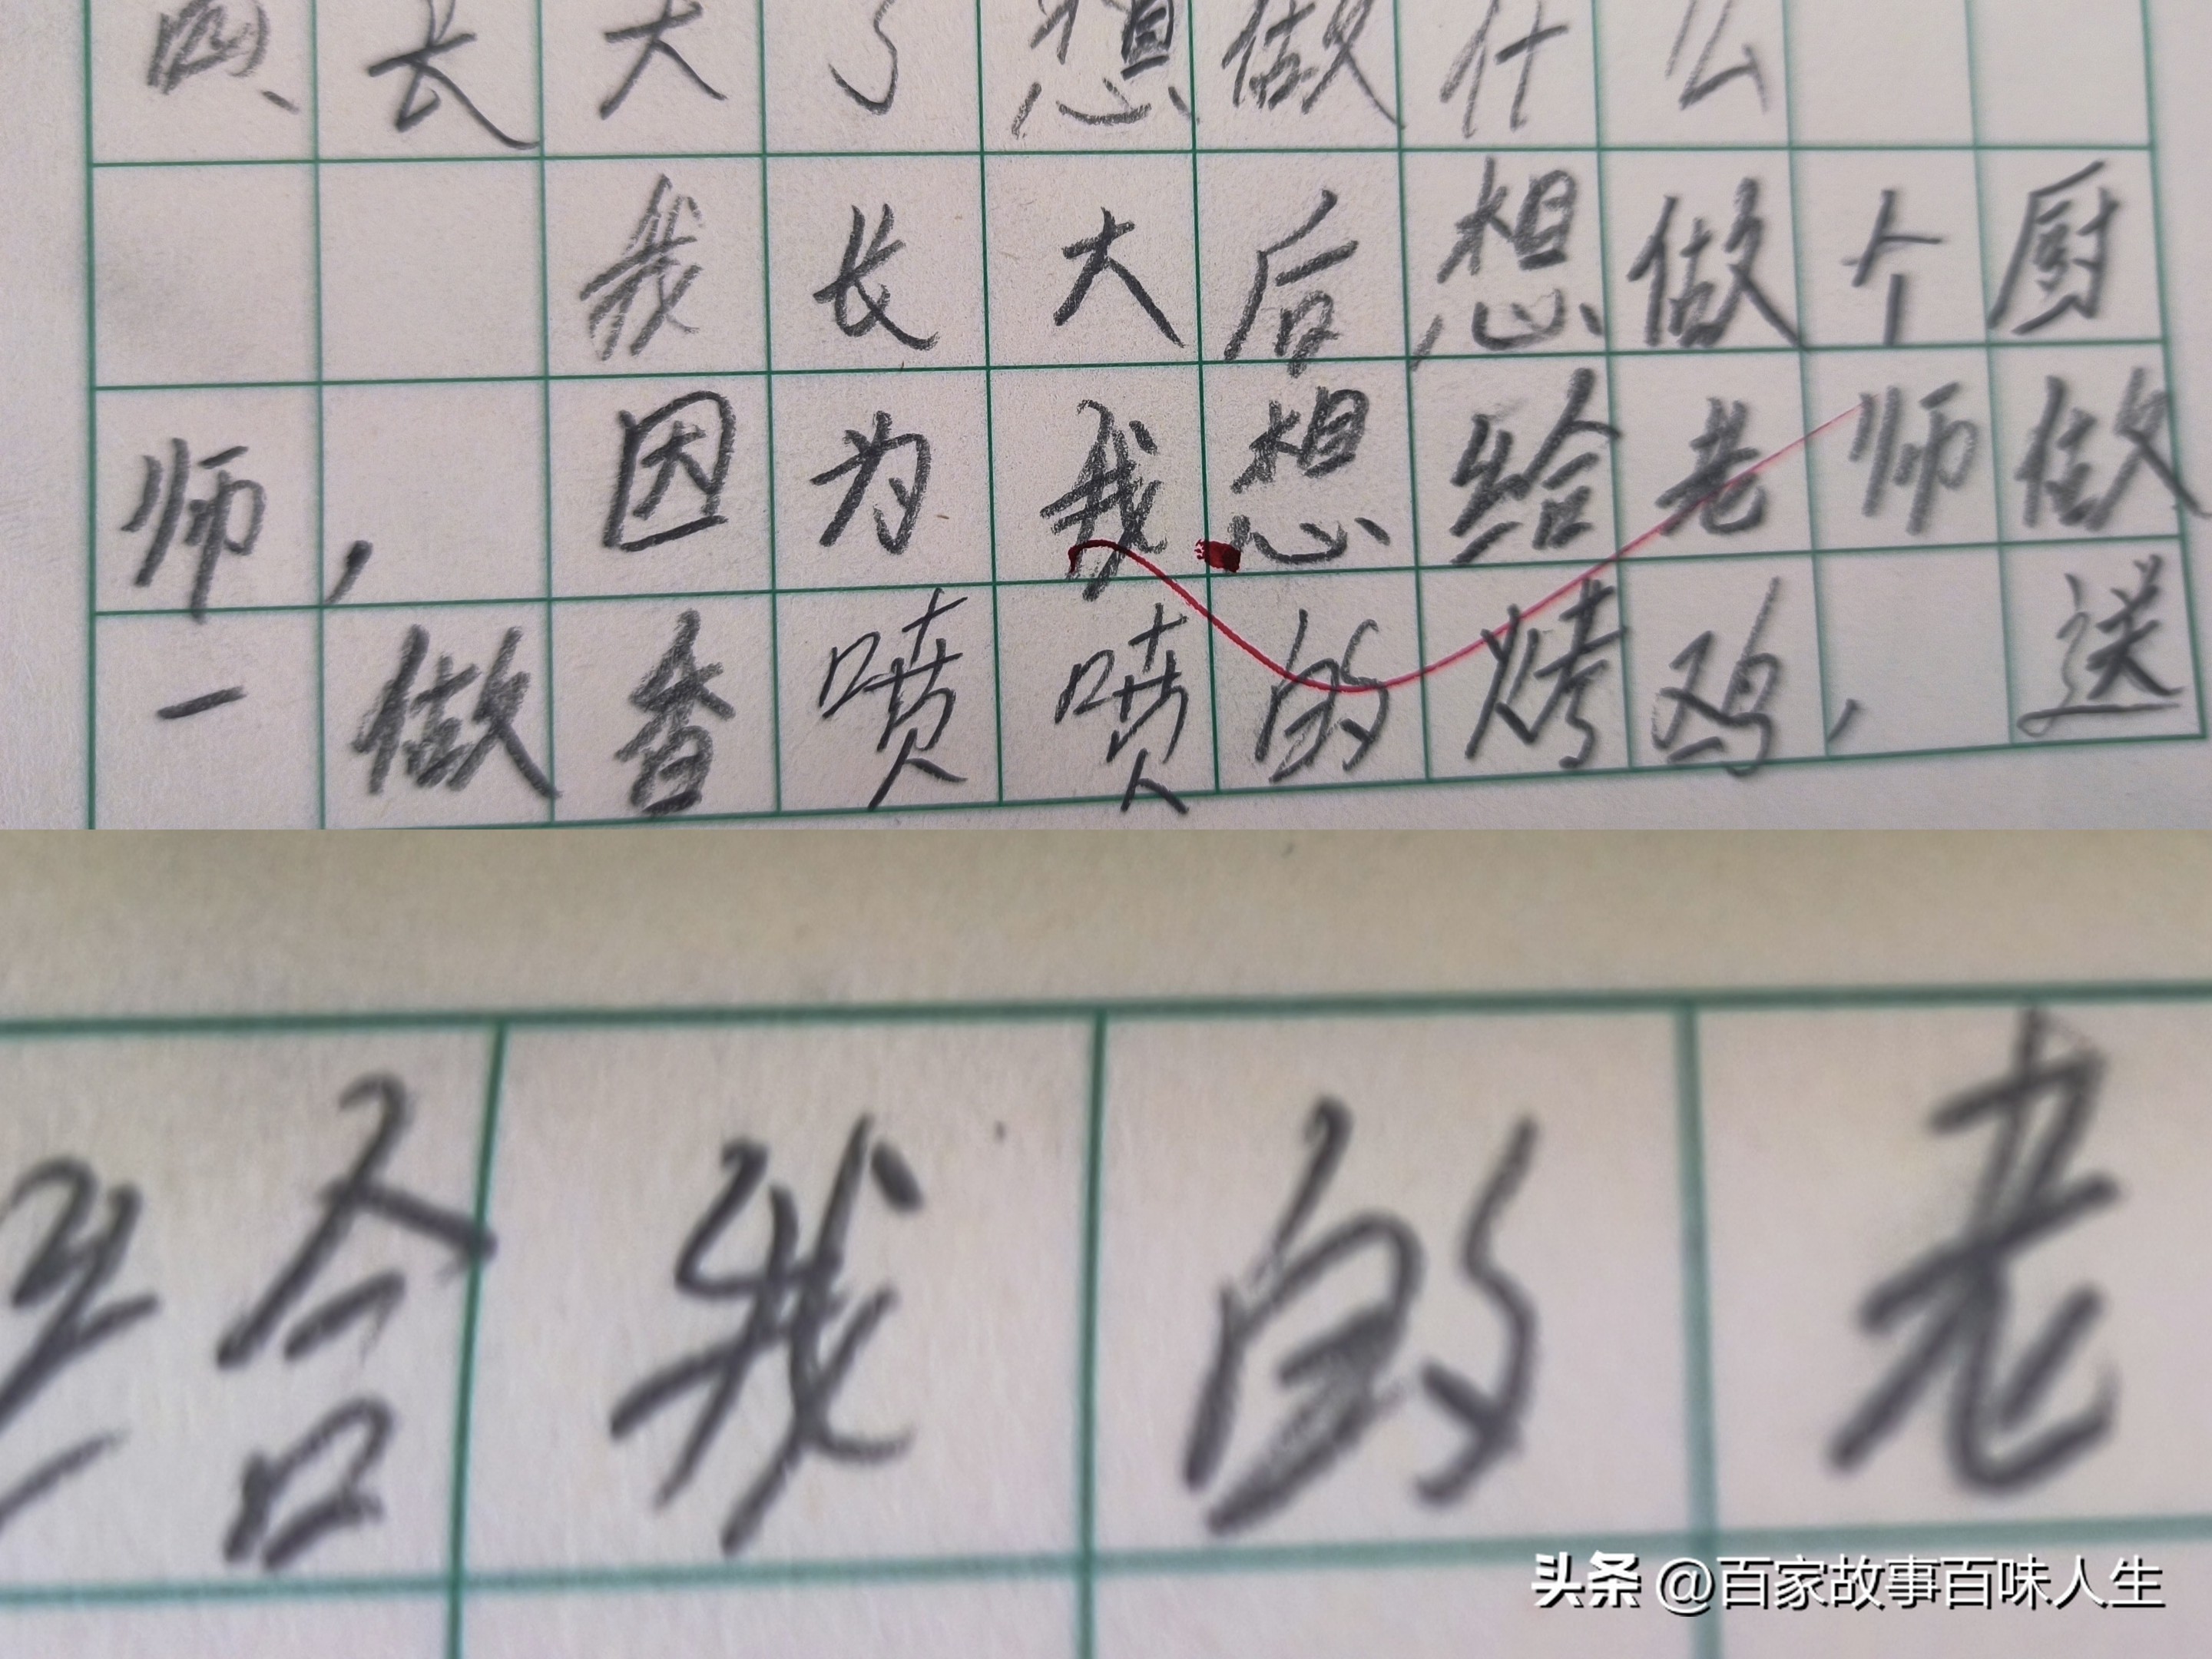 长大了想做什么
我长大后想做个厨
师，因为我想给老师做
一做香喷喷的烤鸡，送
给我的老
头条 @百家故事百味人生